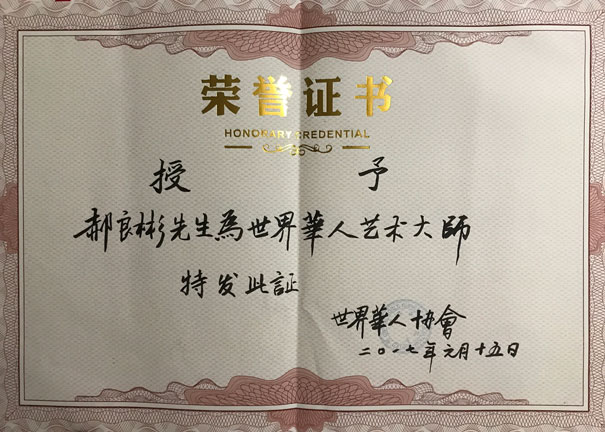 荣誉证书
HONORARY CREDENTIAL
授予
郝良彬先生為世界華人艺术大師
特发此証
世界華人协會
二〇一七年元月十五日